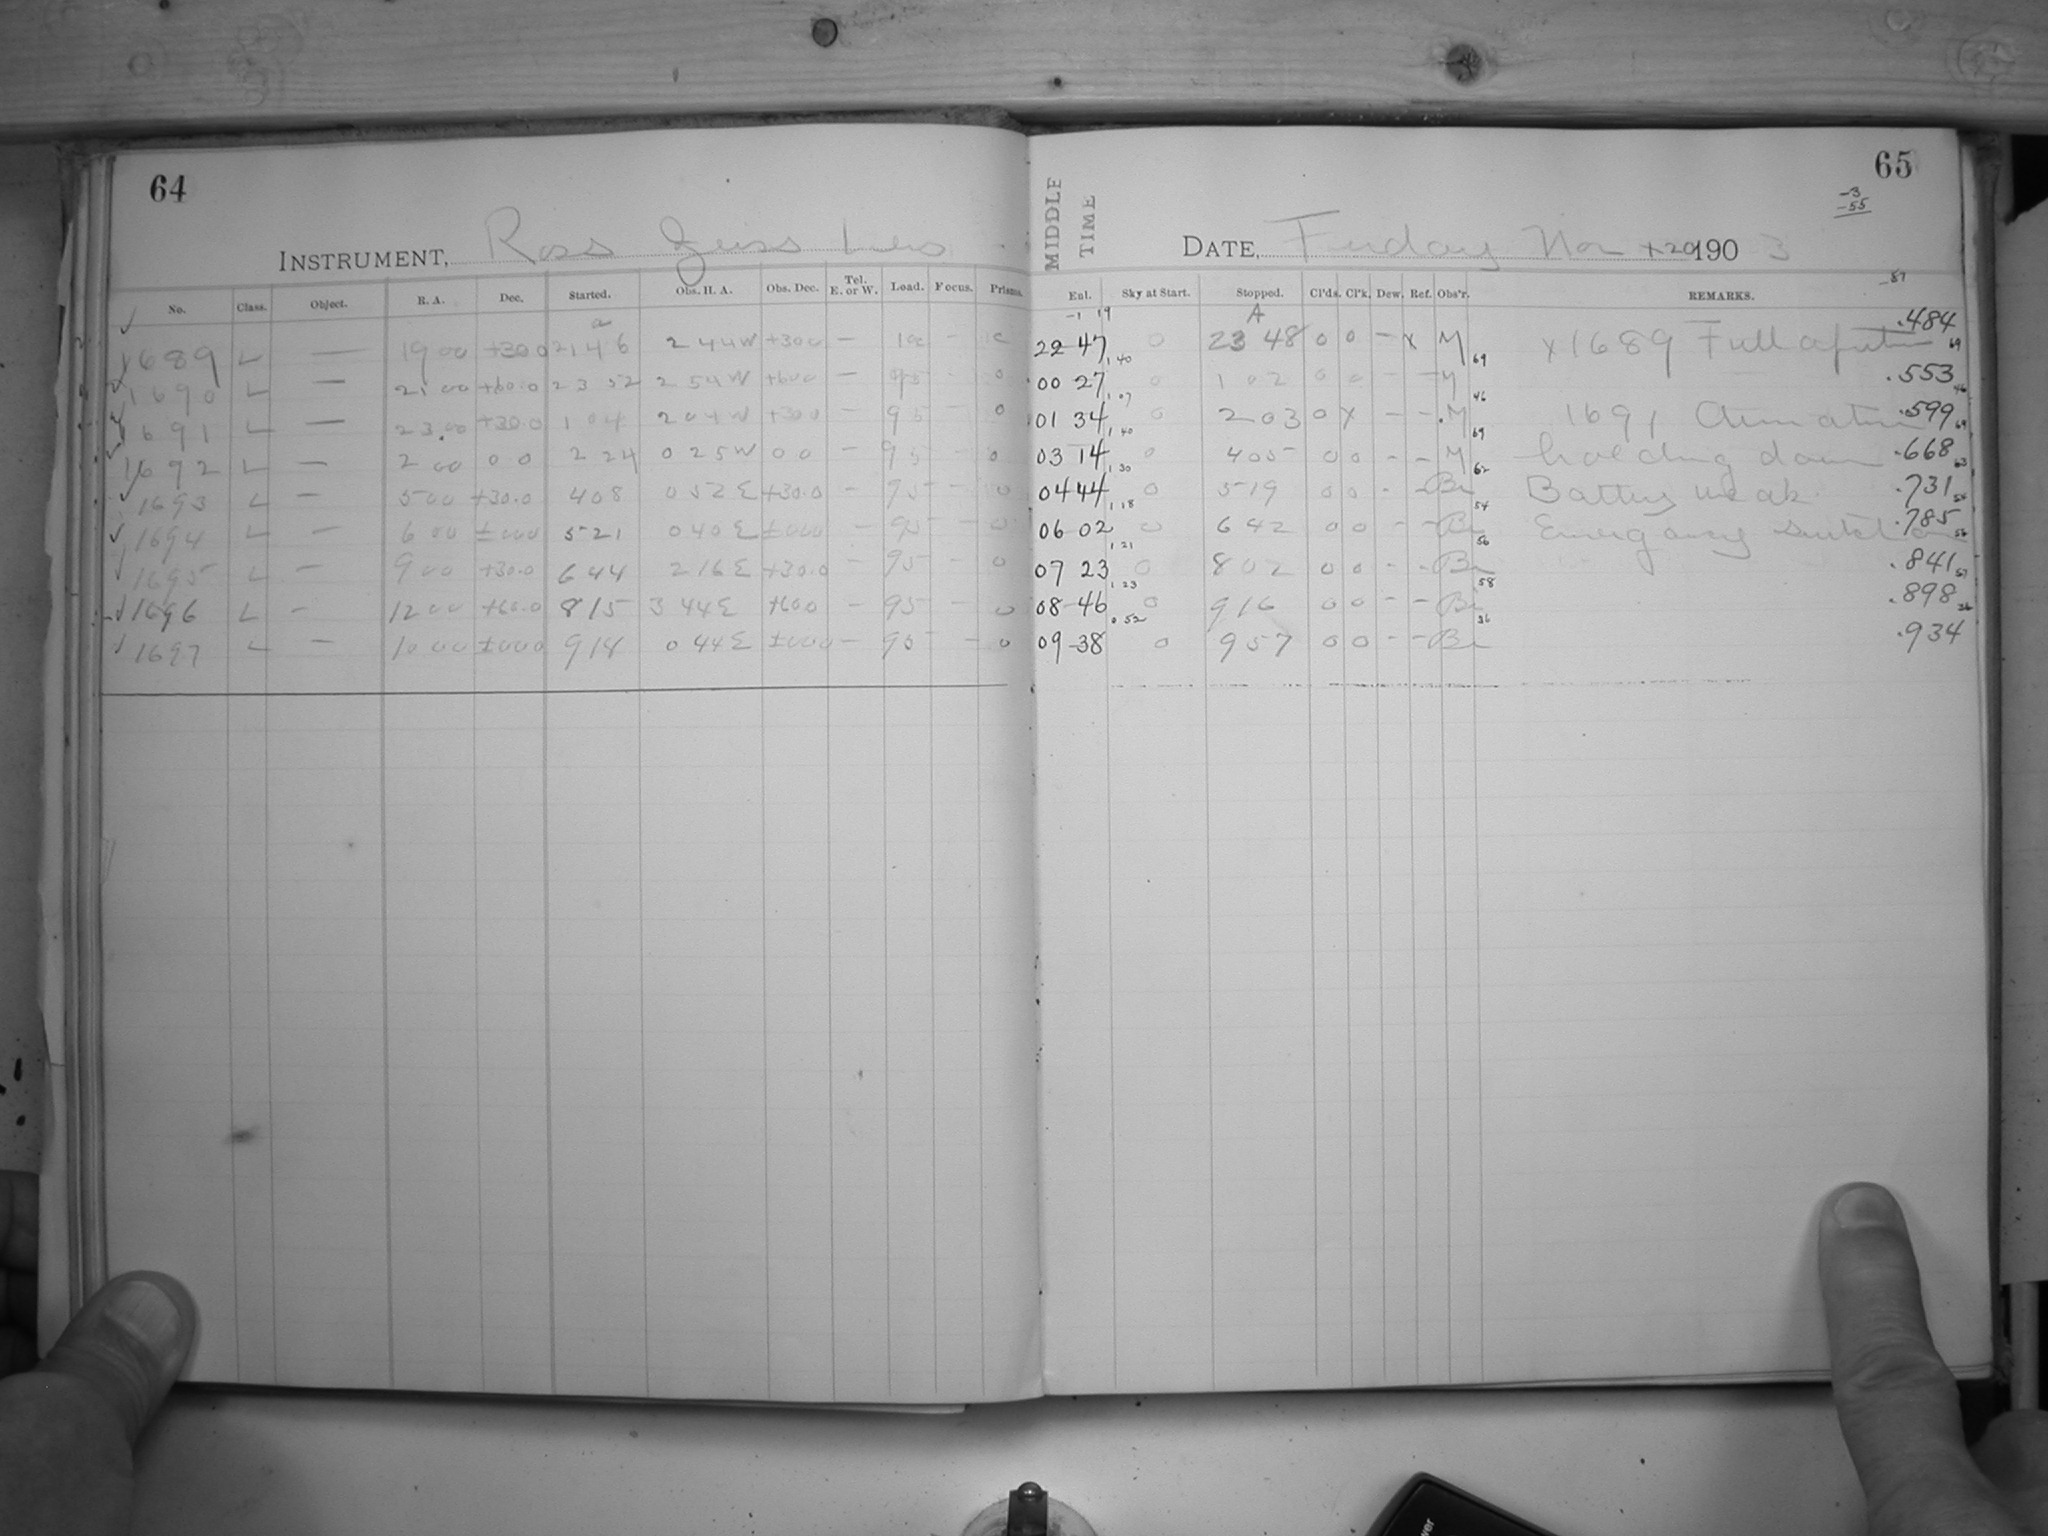 64
INSTRUMENT, Ross Zeiss Lens
No. Class. Object. R. A. Dec. Started. Obs. H. A. Obs. Dec. Tel. E. or W. Load. Focus. Prisms.
1689 L — 19 00 +30 0 21 46 2 44 W +30 0 — 10 -
1690 L — 21 00 +60.0 23 52 2 54 W +60 0 — 95 - 0
1691 L — 23.00 +30.0 1 04 2 04 W +30 0 — 95 - 0
1692 L — 2 00 0 0 2 24 0 25 W 0 0 — 95 - 0
1693 L — 5 00 +30.0 4 08 0 52 E +30.0 — 95 - 0
1694 L — 6 00 ±000 5 21 0 40 E ±000 — 95 - 0
1695 L — 9 00 +30.0 6 44 2 16 E +30.0 - 95 - 0
1696 L — 12 00 +60.0 8 15 3 44 E +60 0 — 95 - 0
1697 L — 10 00 ±000 9 14 0 44 E ±000 — 95 - 0
65
-3
-55
MIDDLE TIME
DATE, Friday Nov 20 190 3
-87
Enl. Sky at Start. Stopped. Cl'ds. Cl'k. Dew. Ref. Obs'r. REMARKS.
-1 19 A
22 47 0 23 48 0 0 - x M x1689 Full aperture .484
1 40 69 69
00 27 0 1 02 0 0 - - M .553
1 07 46 46
01 34 0 2 03 0 x - - M 1691 Armature .599
1 40 69 69
03 14 0 4 05 0 0 - - M holding down .668
1 30 62 63
04 44 0 5 19 0 0 - - Bi Battery weak .731
1 18 54 54
06 02 0 6 42 0 0 - - Bi Emergency .785
1 21 56 56
07 23 0 8 02 0 0 - - Bi .841
1 23 58 57
08 46 0 9 16 0 0 - - Bi .898
0 52 36 36
09 38 0 9 57 0 0 - - Bi .934